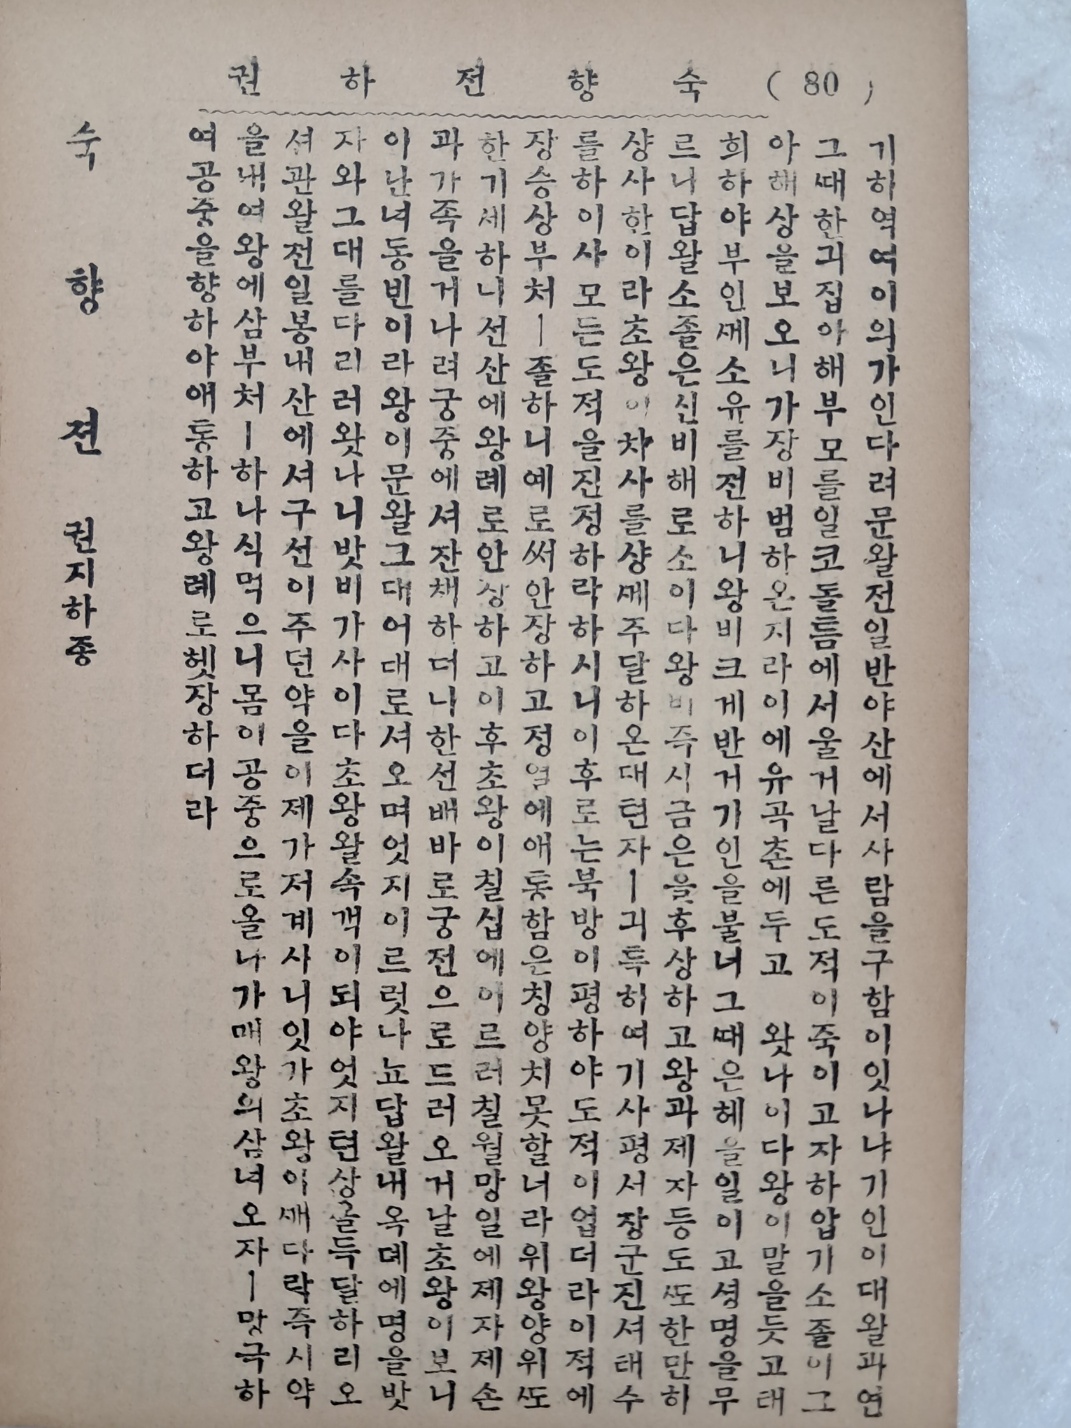 ( 80 ) 숙향전하권
기하역여이의가인다려문왈전일반야산에서사람을구함이잇나냐기인이대왈과연
그때한괴집아해부모를일코돌틈에서울거날다른도적이죽이고자하압기소졸이그
아해상을보오니가장비범하온지라이에유곡촌에두고 왓나이다왕이말을듯고대
희하야부인ᄭᅦ소유를전하니왕비크게반거기인을불너그때은혜을일이고셩명을무
르니답왈소졸은신비해로소이다왕비즉시금은을후상하고왕과제자등도ᄯᅩ한만히
샹사한이라초왕이차사를샹ᄭᅦ주달하온대텬자ㅣ긔특히여기사평서장군진셔태수
를하이사모든도적을진정하락하시니이후로는북방이평하야도적이업더라이적에
장승상부처ㅣ졸하니예로써안장하고정열에애통함은칭양치못할너라위왕양위ᄯᅩ
한기세하니선산에왕례로안장하고이후초왕이칠십에이르러칠월망일에제자제손
과가족을거나려궁중에셔잔채하더니한선배바로궁전으로드러오거날초왕이보니
이난녀동빈이라왕이문왈그대어대로셔오며엇지이르럿나뇨답왈내옥뎨에명을밧
자와그대를다리러왓나니밧비가사이다초왕왈속객이되야엇지텬상을득달하리오
셔관왈전일봉내산에셔구선이주던약을이제가저계사니잇가초왕이ᄭᅢ다락즉시약
을내여왕에삼부처ㅣ하나식먹으니몸이공중으로올나가매왕의삼녀오자ㅣ망극하
여공중을향하야애통하고왕례로헷장하더라
숙향젼 권지하종